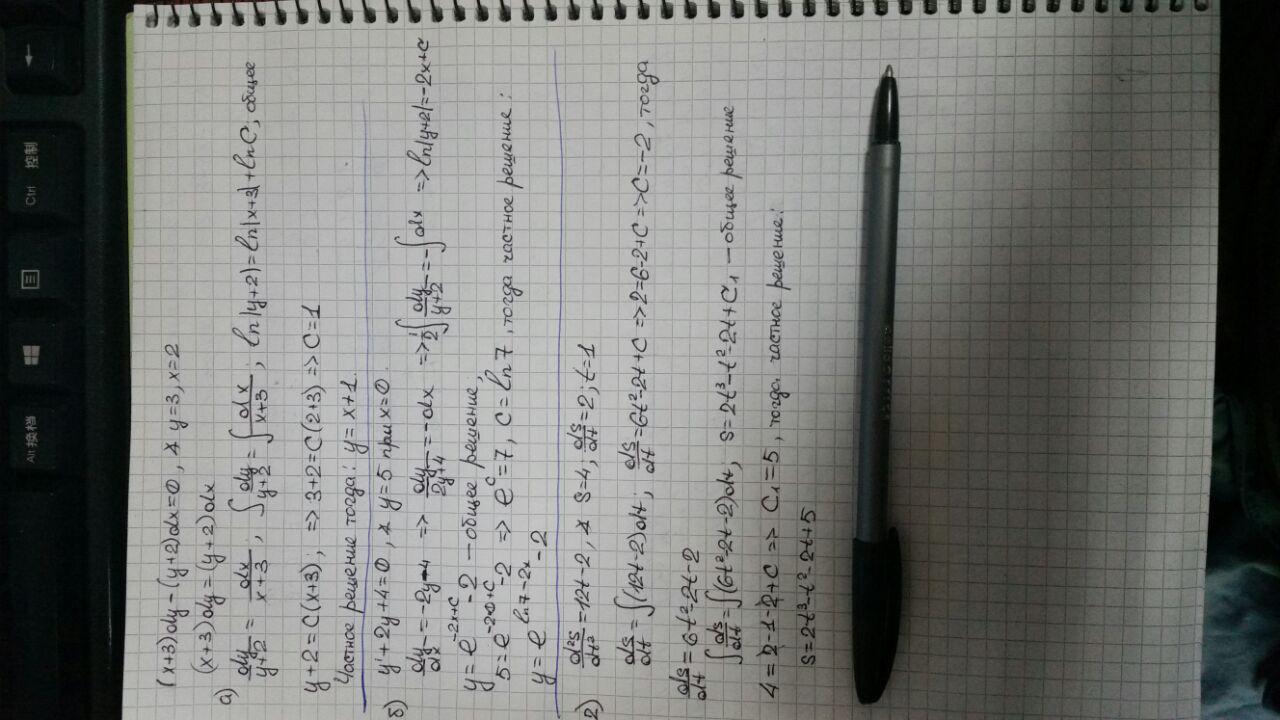 (x+3)dy-(y+2)dx=0, и y=3, x=2
(x+3)dy=(y+2)dx
а) dy/y+2 = dx/x+3; ∫dy/y+2 = ∫dx/x+3; ln|y+2|=ln|x+3|+lnC; общее
y+2=C(x+3); => 3+2=C(2+3) => C=1
Частное решение тогда: y=x+1.
б) y'+2y+4=0, и y=5 при x=0
dy/dx=-2y-4 => dy/2y+4=-dx => 1/2∫dy/y+2=-∫dx => ln|y+2|=-2x+C
y=e^(-2x+C)-2 — общее решение,
5=e^(-2·0+C)-2 => e^C=7, C=ln7, тогда частное решение:
y=e^(ln7-2x)-2
2) d²S/dt²=12t-2, и S=4, dS/dt=2, t=1
dS/dt=∫(12t-2)dt; dS/dt=6t²-2t+C => 2=6-2+C => C=-2, тогда
dS/dt=6t²-2t-2
∫dS/dt=∫(6t²-2t-2)dt, S=2t³-t²-2t+C₁ — общее решение
4=2-1-2+C => C₁=5, тогда частное решение:
S=2t³-t²-2t+5
Alt 换档
Ctrl 控制
←